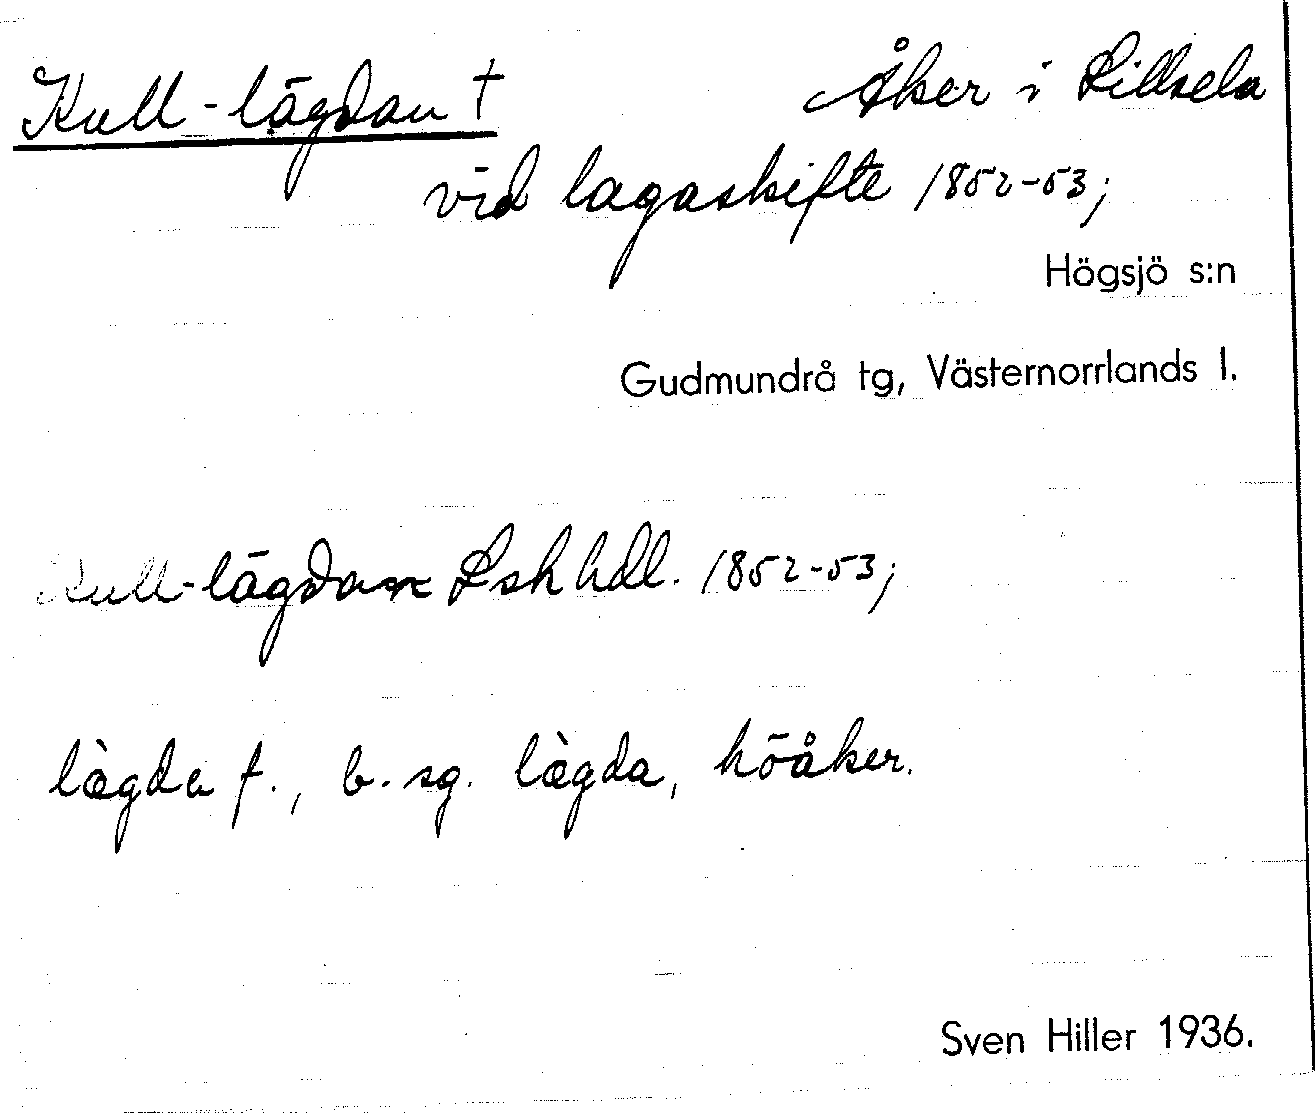 Kull-lägdan † Åker i Lillsela
vid lagaskifte 1852-53;
Högsjö s:n
Gudmundrå tg, Västernorrlands l.
Kull-lägdan Lsk hdl. 1852-53;
lägda f., b. sg. lägda, höåker.
Sven Hiller 1936.